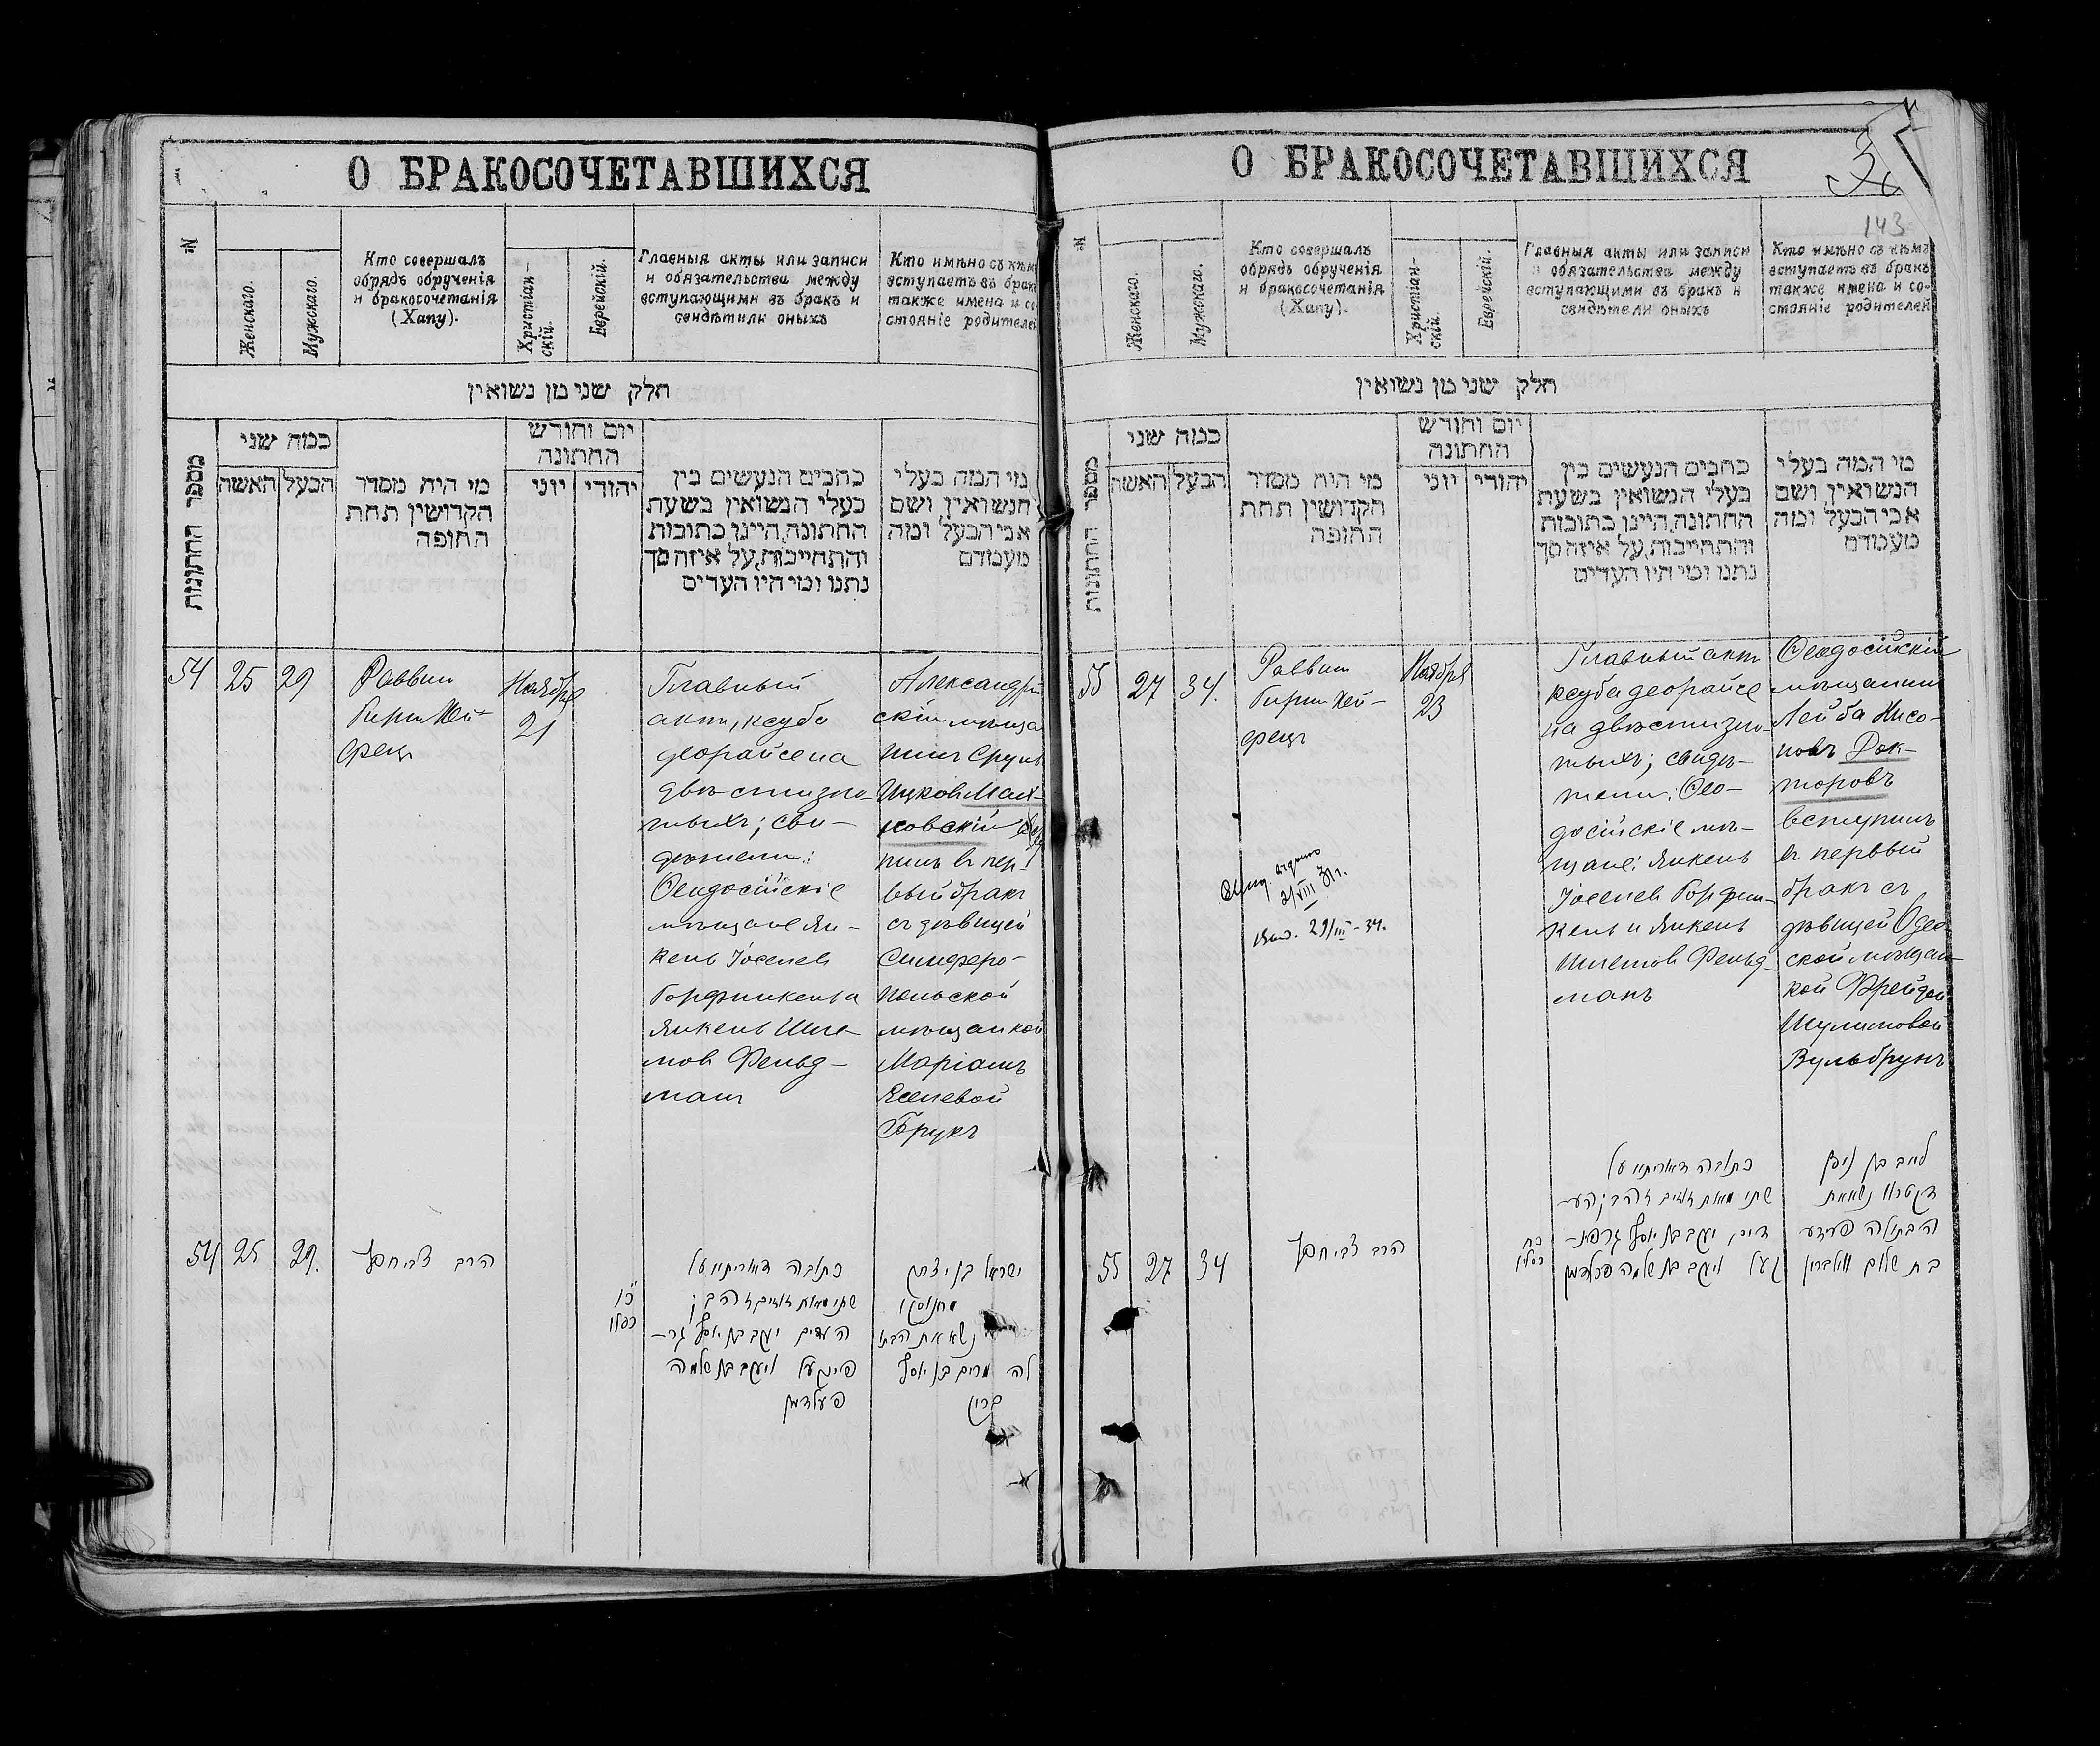 О БРАКОСОЧЕТАВШИХСЯ
№
Женскаго.
Мужскаго.
Кто совершалъ
обрядъ обрученія
и бракосочетанія
(Хапу).
Христіан-
скій.
Еврейскій.
Главныя акты или записи
и обязательства между
вступающими въ бракъ и
свидѣтили оныхъ
Кто имѣно съ кѣмъ
вступаетъ въ бракъ
также имена и со-
стояніе родителей
חלק שני מן נשואין
מספר החתונות
כמה שני
האשה
הבעל
מי היה מסדר
הקדושין תחת
החופה
יום וחודש
החתונה
יוני
יהודי
כתבים הנעשים בין
בעלי הנשואין בשעת
החתונה, היינו כתובות
והתחייבות, על איזה סך
נתנו ומי היו העדים
מי המה בעלי
הנשואין ושם
אבי הבעל ומה
מעמדם
54
25
29
Раввин
Гирш Хей-
фец
Ноября
21
Главный
акт, ксуба
деорайсе на
двѣсти зло-
тыхъ; сви-
дѣтели:
Ѳеодосійскіе
мѣщане Ян-
кель Іоселев
Горфинкель и
Янкель Шле-
мов Фельд-
ман
Александрій
скій мѣща
нинъ Сруль
Ицков Мах-
новскій всту
пилъ в пер-
вый бракъ
съ дѣвицей
Симферо-
польской
мѣщанкой
Маріамъ
Іоселевой
Брукъ
54
25
29.
הרב צבי חפץ
כו
כסלו
כתובה דאורייתא על
שתי מאות זוזים זהב;
העדים יעקב בן יוסף גר-
פינקעל ויעקב בן שלמה
פעלדמן
ישראל בן יצחק
מחנוסקי
נשא את הבתו
לה מרים בת יוסף
ברוק
О БРАКОСОЧЕТАВШИХСЯ
143
№
Женскаго.
Мужскаго.
Кто совершалъ
обрядъ обрученія
и бракосочетанія
(Хапу).
Христіан-
скій.
Еврейскій.
Главныя акты или записи
и обязательства между
вступающими въ бракъ и
свидѣтели оныхъ
Кто имѣно съ кѣмъ
вступаетъ въ бракъ
также имена и со-
стояніе родителей
חלק שני מן נשואין
מספר החתונות
כמה שני
האשה
הבעל
מי היה מסדר
הקדושין תחת
החופה
יום וחודש
החתונה
יוני
יהודי
כתבים הנעשים בין
בעלי הנשואין בשעת
החתונה, היינו כתובות
והתחייבות, על איזה סך
נתנו ומי היו העדים
מי המה בעלי
הנשואין ושם
אבי הבעל ומה
מעמדם
55
27
34.
Раввин
Гирш Хей-
фецъ
Ноября
23
Главный акт
ксуба деорайсе
на двѣсти зло-
тыхъ; свидѣ-
тели: Ѳео-
досійскіе мѣ-
щане: Янкель
Іоселев Горфин-
кель и Янкель
Шлемов Фельд-
манъ
Ѳеодосійскій
мѣщанинъ
Лейба Нисо-
новъ Док-
торовъ
вступилъ
въ первый
бракъ съ
дѣвицей Одес
ской мѣщан-
кой Фрейдой
Шулимовой
Вульбрунъ
2/VIII 31 г.
29/III - 34.
55
27
34
הרב צבי חפץ
כח
כסלו
כתובה דאורייתא על
שתי מאות זוזים זהב; הע-
דים, יעקב בן יוסף גרפינ-
קעל ויעקב בן שלמה פעלדמן
לייב בן ניסן
דקטרוו נשא את
הבתולה פריידע
בת שלום וולברון